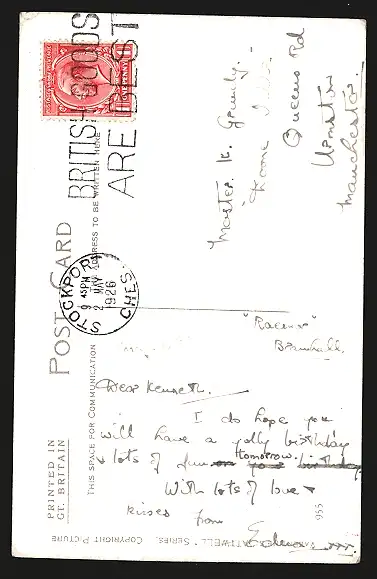 BRITISH GOODS
ARE BEST
POST CARD
THE ADDRESS TO BE WRITTEN HERE
STOCKPORT
9 45PM
2 MAY
1926
CHES.
Master K.
Home Villa
Queens Rd
Urmston
Manchester.
PRINTED IN
GT. BRITAIN
THIS SPACE FOR COMMUNICATION
Bramhall.
Dear Kenneth.
I do hope you
will have a jolly birthday
& lots of fun on your birthday
tomorrow.
With lots of love &
kisses from
SERIES. COPYRIGHT PICTURE